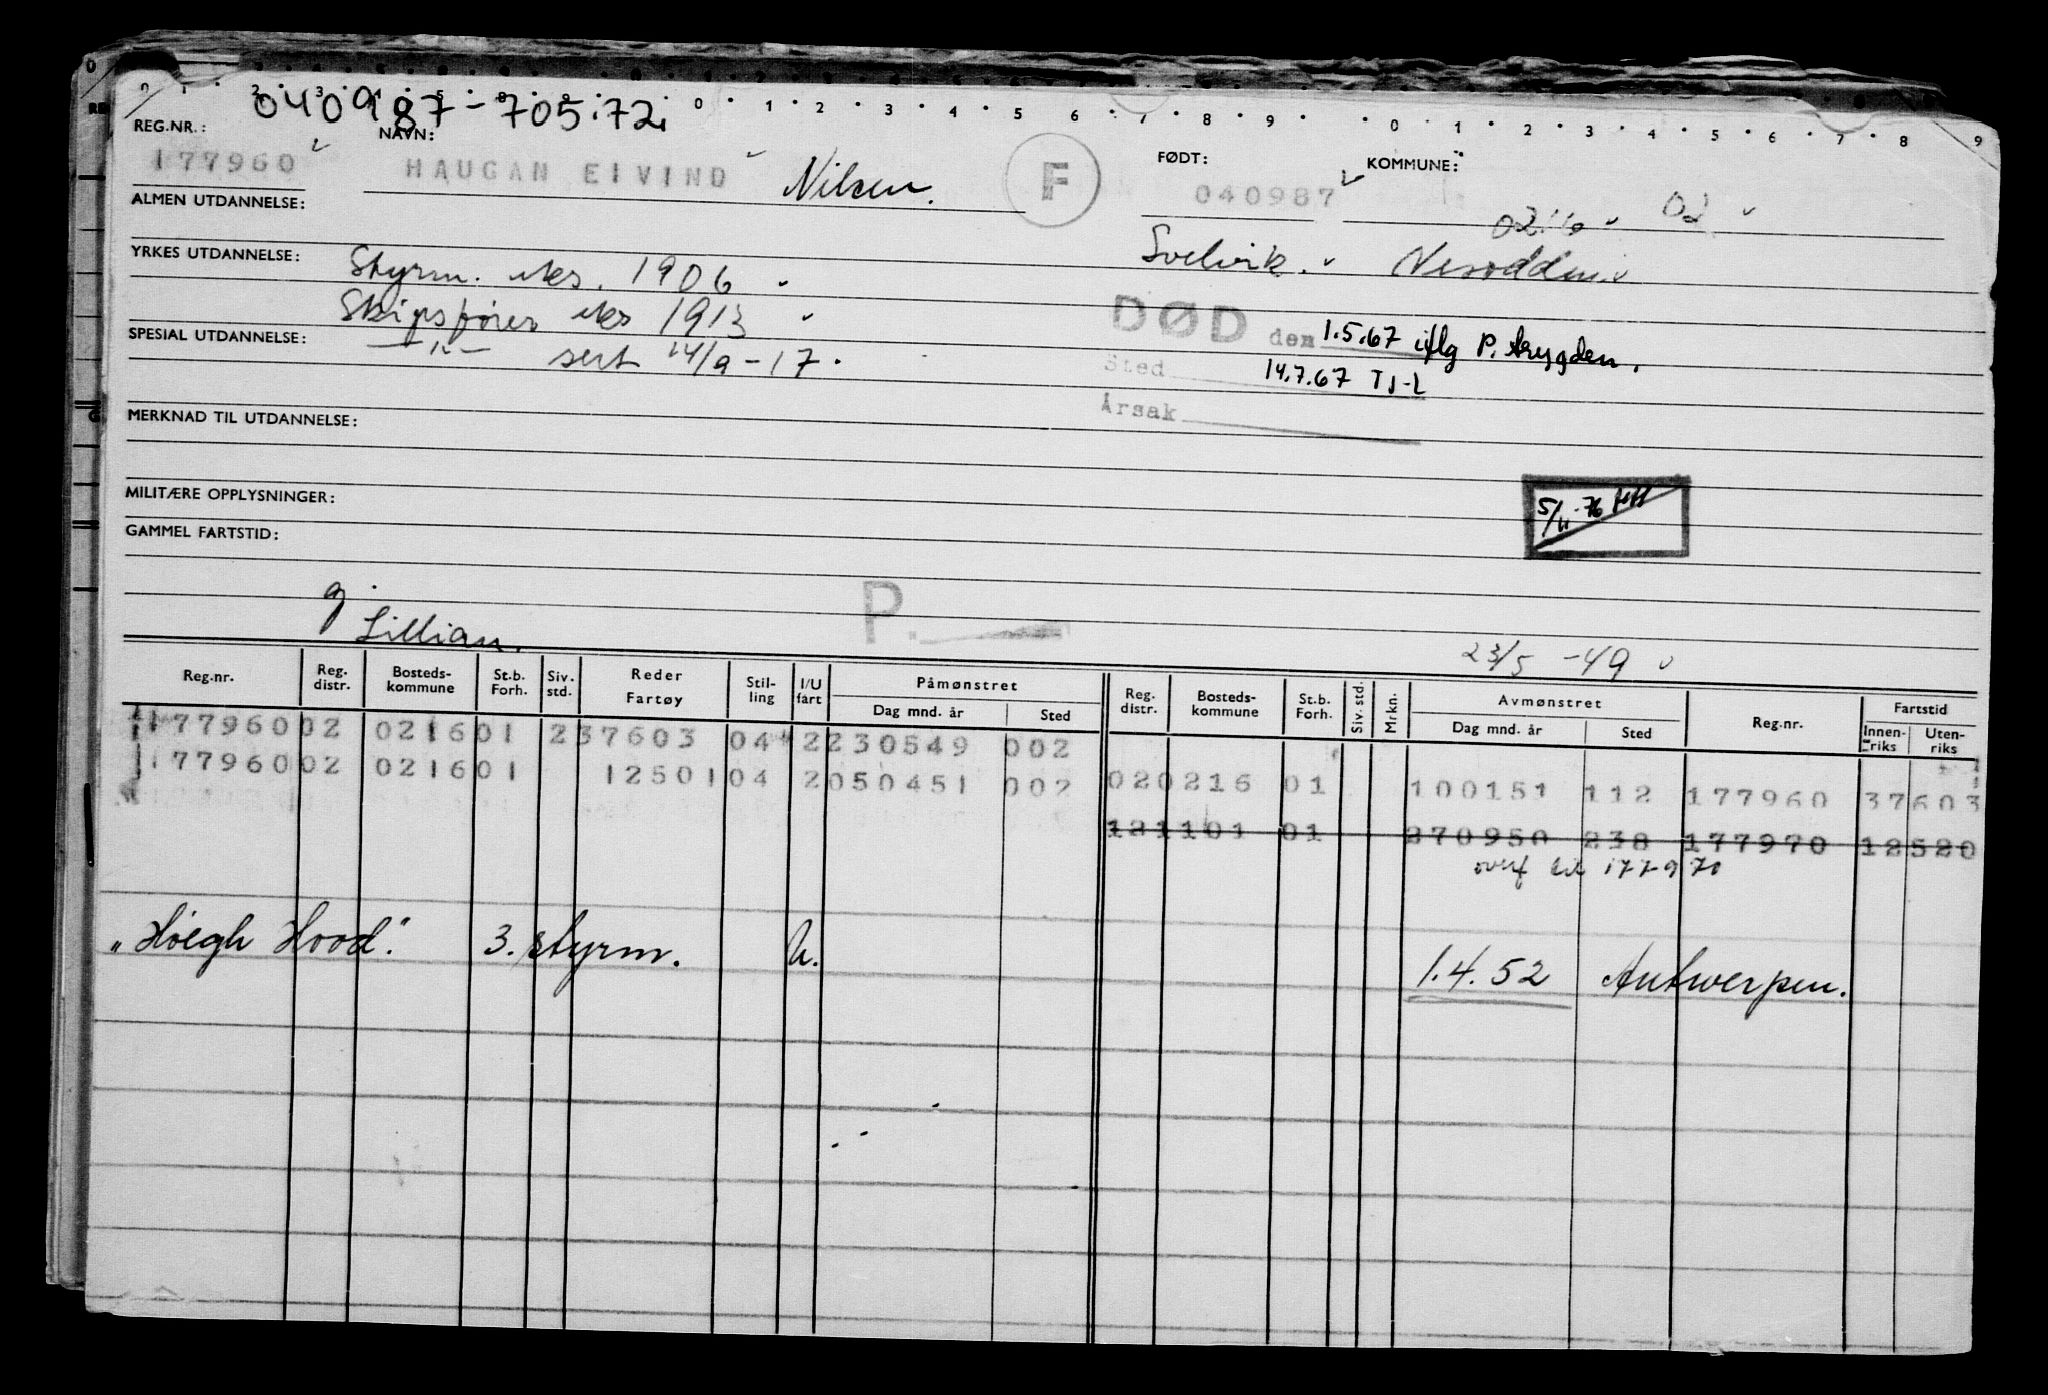 040987-705.72.
REG.NR.: NAVN: FØDT: KOMMUNE:
177960 HAUGAN EIVIND Nilsen. F 040987
0216 02
ALMEN UTDANNELSE:
Svelvik. Nesodden
YRKES UTDANNELSE: Styrm. eks. 1906
Skipsfører eks 1913
DØD den 1.5.67 iflg P. trygden.
SPESIAL UTDANNELSE: —"— sert 14/9-17.
Sted 14.7.67 TJ-L
Årsak
MERKNAD TIL UTDANNELSE:
MILITÆRE OPPLYSNINGER:
5/11-76
GAMMEL FARTSTID:
g.
Lillian.
P.
23/5 -49
Reg.nr. Reg. distr. Bosteds-kommune St.b. Forh. Siv. std. Reder Fartøy Stil-ling I/U fart Påmønstret Dag mnd. år Sted Reg. distr. Bosteds-kommune St.b. Forh. Siv. std. Mrkn. Avmønstret Dag mnd. år Sted Reg.nr. Fartstid Innen-riks Uten-riks
177960 02 0216 01 2 37603 04 2 230549 002
177960 02 0216 01 12501 04 2 050451 002 02 0216 01 100151 112 177960 37603
12 1101 01 270950 238 177970 12520
overf til 177970
"Höegh Hood". 3. styrm. U. 1.4.52 Antwerpen.